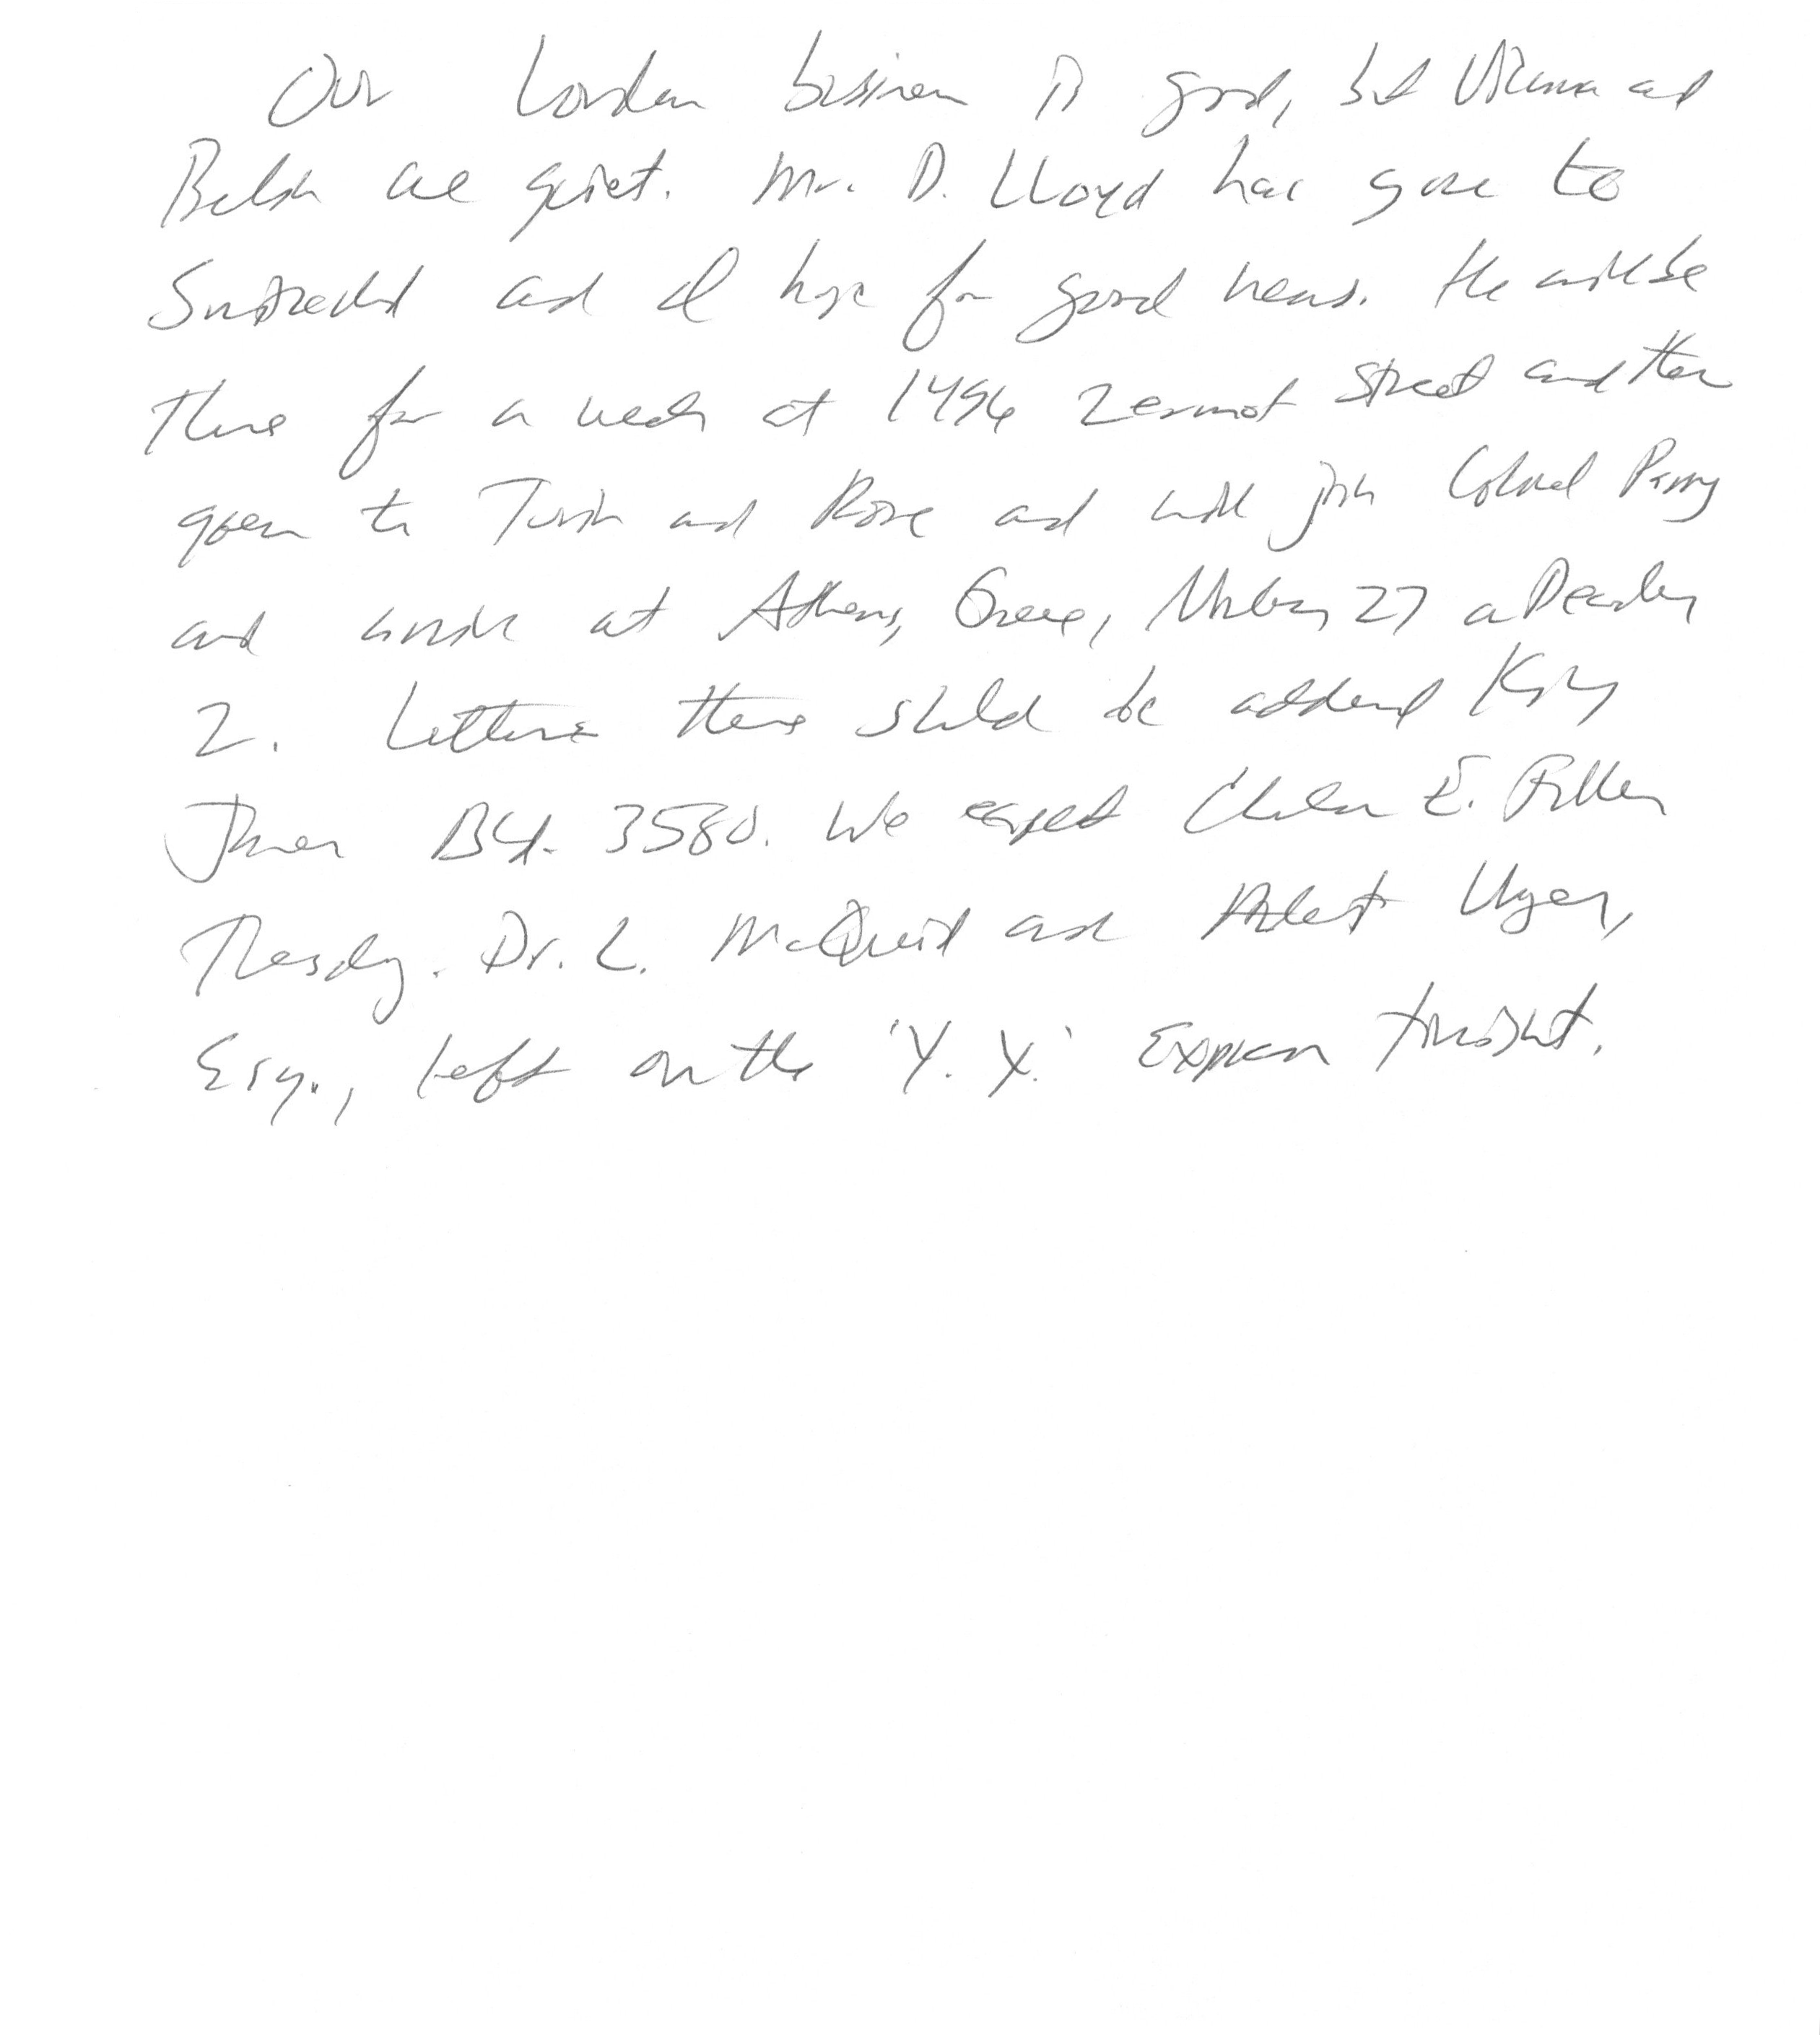 Our London business is good, but Vienna and
Berlin are quiet. Mr. D. Lloyd has gone to
Switzerland and I hope for good news. He will be
there for a week at 1496 Zermot Street and then
goes to Turin and Rome and will join Colonel Parry
and arrive at Athens, Greece, November 27 or December
2. Letters there should be addressed King
James Blvd. 3580. We expect Charles E. Fuller
Tuesday. Dr. L. McQuaid and Robert Unger,
Esq., left on the 'Y. X.' Express tonight.